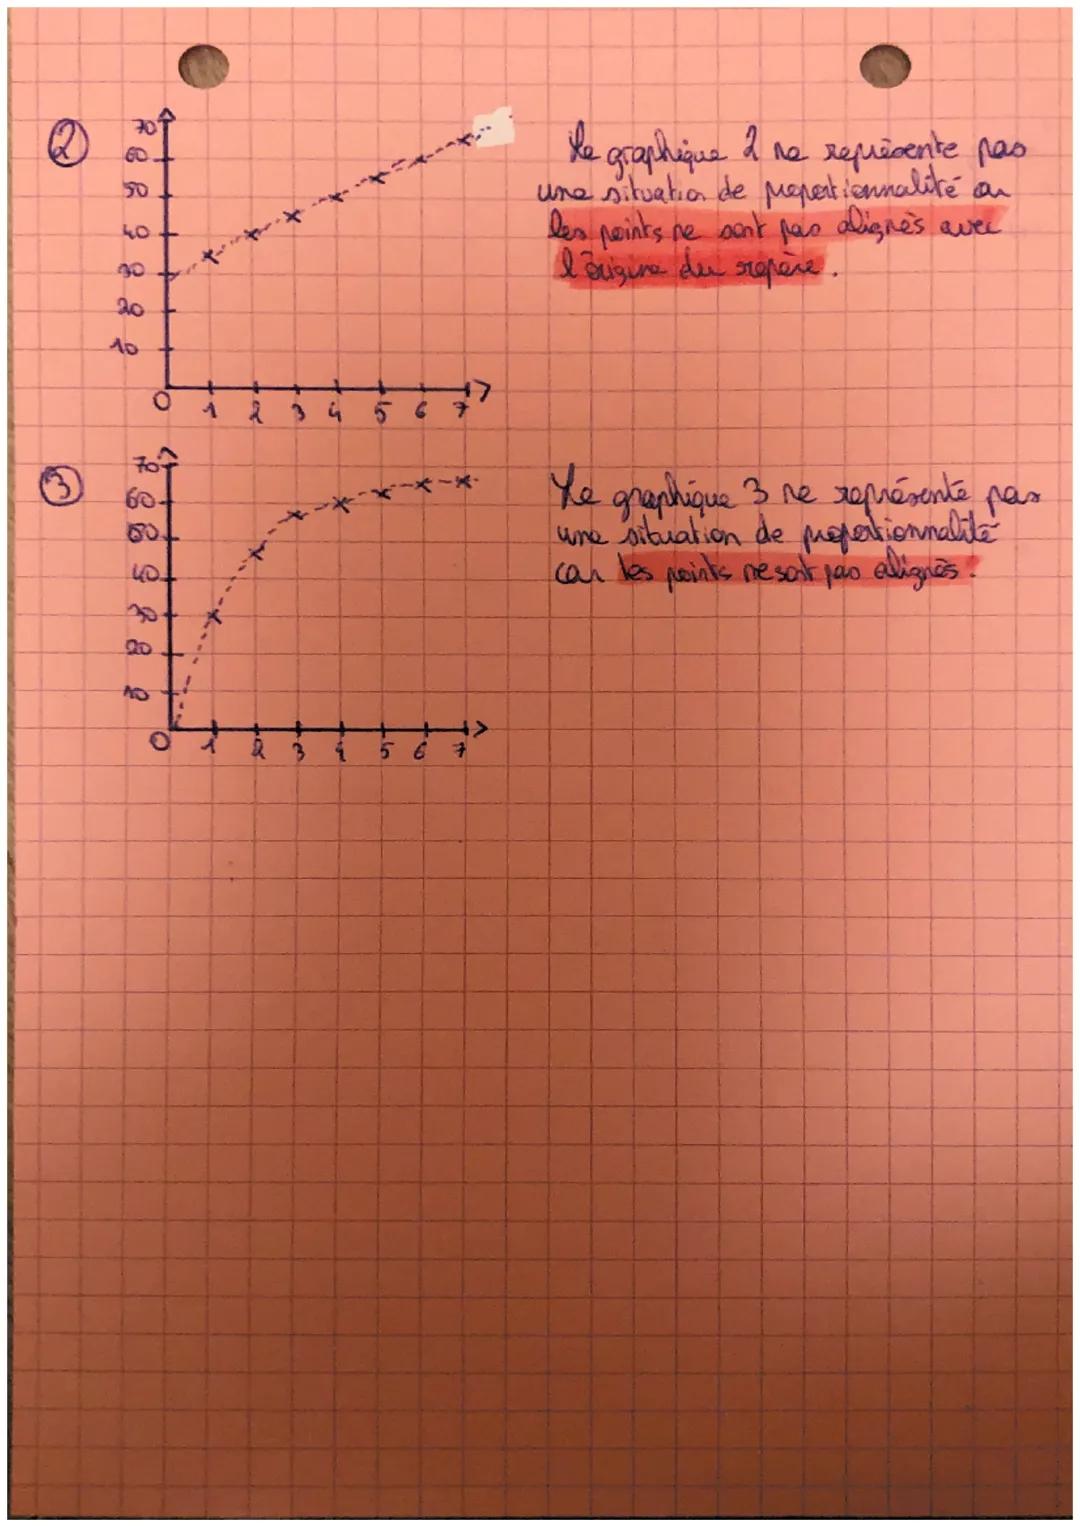 ②
70
60
50
40
30
20
10
0 1 2 3 4 5 6 7
Le graphique 2 ne représente pas
une situation de proportionnalité car
les points ne sont pas alignés avec
l'origine du repère.
③
70
60
50
40
30
20
10
0 1 2 3 4 5 6 7
Le graphique 3 ne représente pas
une situation de proportionnalité
car les points ne sont pas alignés.